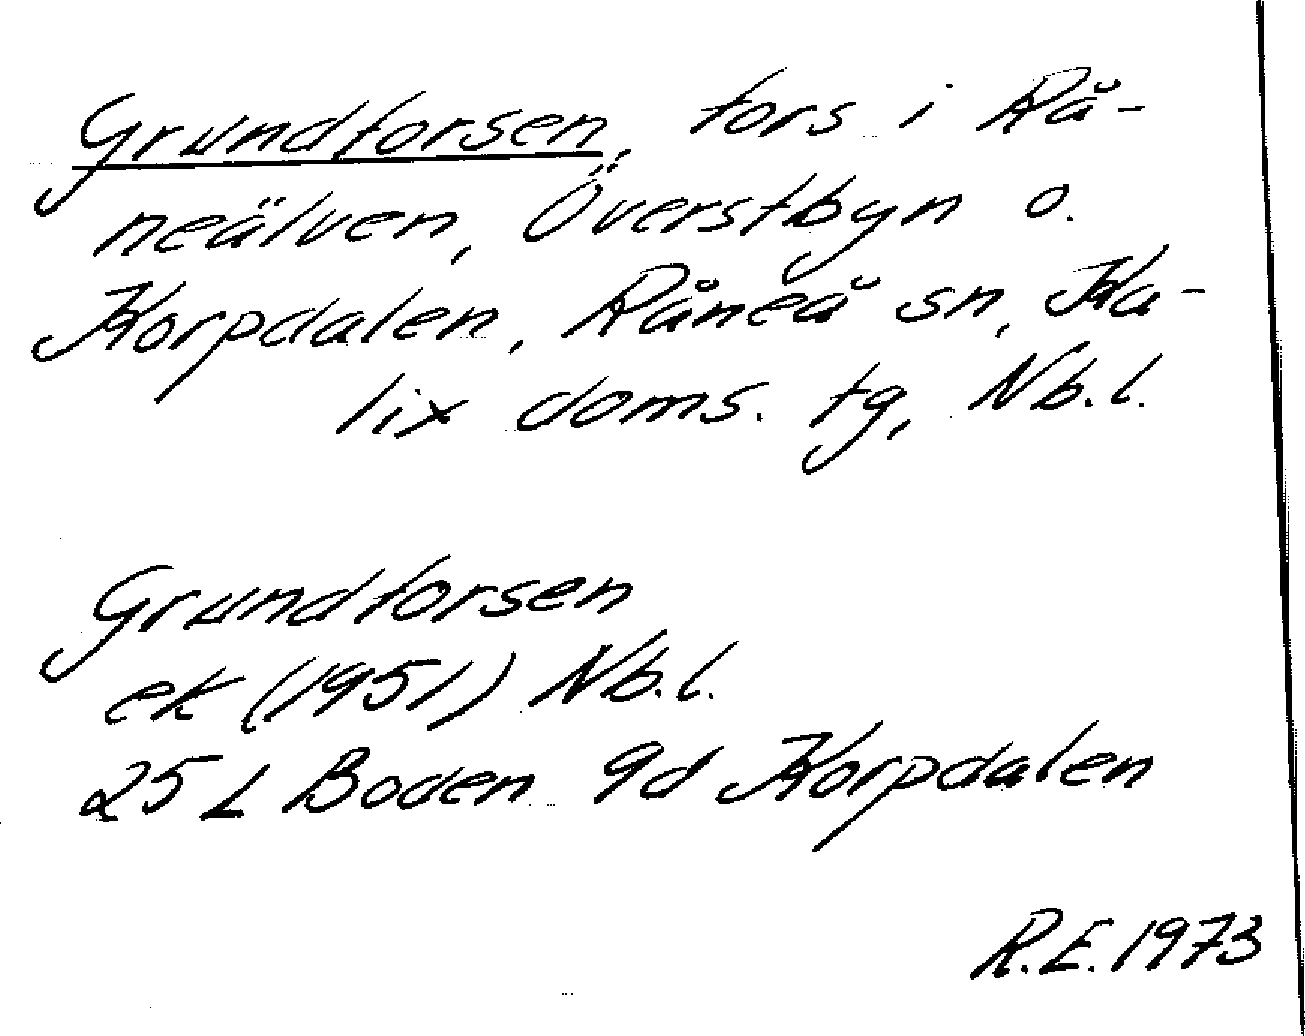 Grundforsen, fors i Rå-
neälven, Överstbyn o.
Korpdalen, Råneå sn, Ka-
lix doms. tg, Nb.l.
Grundforsen
ek (1951) Nb.l.
25 L Boden 9d Korpdalen
R.E. 1973